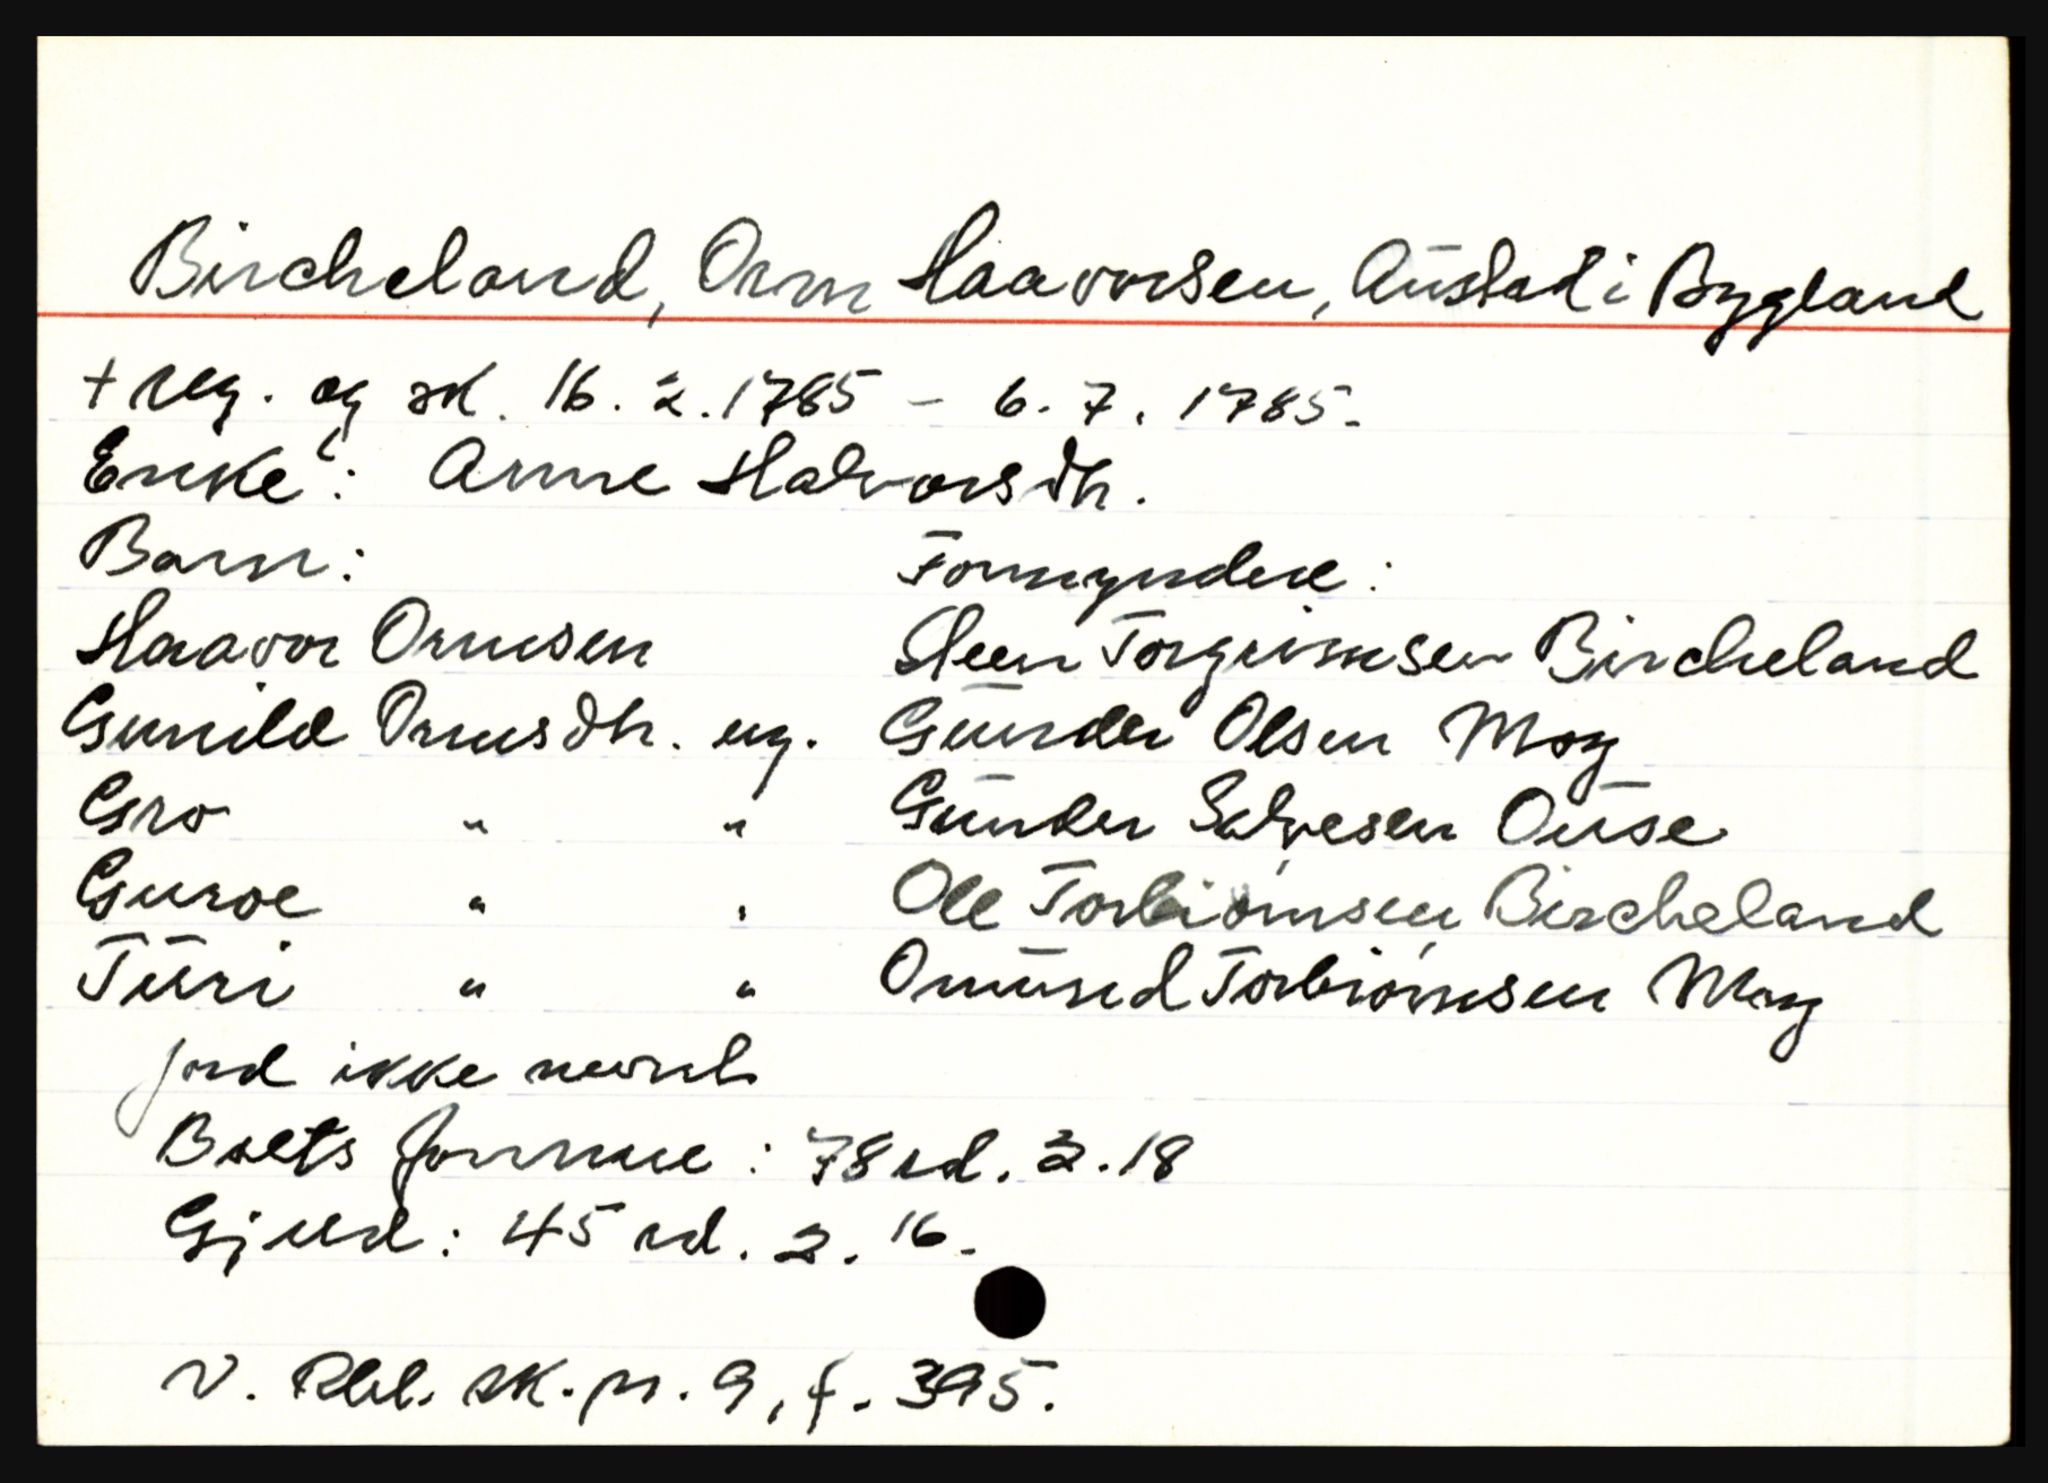 Bircheland, Orm Haavorsen, Austad i Bygland
+ reg. og sk. 16.2.1785 - 6.7.1785.
Enke: Anne Halvorsdtr.
Barn: Formyndere:
Haavor Ormsen Steen Torgrimsen Bircheland
Gunild Ormsdtr. ug. Gunder Olsen Moy
Gro " " Gunder Salvesen Ouse
Guroe " " Ole Torbiørnsen Bircheland
Turi " " Omund Torbiørnsen Moy
Jord ikke nevnt
Boets formue: 78 rd. 3.18
Gjeld: 45 rd. 2.16.
V. Rbl. sk.pr. 9, f. 395.